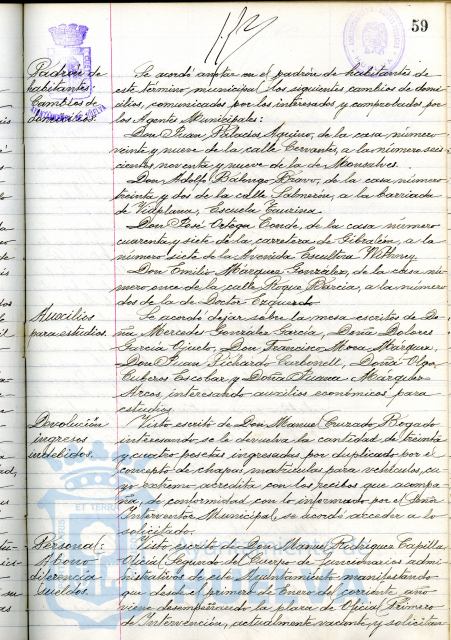 59
Padrón de
habitantes.
Cambios de
domicilios.
Se acordó anotar en el padrón de habitantes de
este término municipal los siguientes cambios de domi-
cilios, comunicados por los interesados y comprobados por
los Agentes Municipales:
Don Juan Palacios Aquino, de la casa número
veinte y nueve de la calle Cervantes, a la número seis-
cientos noventa y nueve de la de Monsalves.
Don Adolfo Bravo, de la casa número
treinta y dos de la calle Salmerón, a la barriada
de Vidplana, Escuela Taurina.
Don José Ortega Conde, de la casa número
cuarenta y siete de la carretera de Gibraleón, a la
número siete de la Avenida Escultora Withney.
Don Emilio Márquez González, de la casa nú-
mero once de la calle Roque Barcia, a la número
dos de la de Doctor
Auxilios
para estudios.
Se acordó dejar sobre la mesa escritos de Do-
ña Mercedes González García, Doña Dolores
García Ojuelo, Don Francisco Mora Márquez,
Don Juan Pichardo Carbonell, Doña Olga
Cuberos Escobar, y Doña Juana Márquez
Arcos, interesando auxilios económicos para
estudios.
Devolución
ingresos
indebidos.
Visto escrito de Don Manuel Curado Regado
interesando se le devuelva la cantidad de treinta
y cuatro pesetas ingresadas por duplicado por el
concepto de chapas, matrículas para vehículos, cu-
yo extremo acredita con los recibos que acompa-
ña, de conformidad con lo informado por el Señor
Interventor Municipal, se acordó acceder a lo
solicitado.
Personal:
Abono
diferencia
sueldos.
Visto escrito de Don Manuel Rodríguez Capilla
Oficial Segundo del Cuerpo de funcionarios admi-
nistrativos de este Ayuntamiento manifestando
que desde el primero de Enero del corriente año
viene desempeñando la plaza de Oficial Primero
de Intervención, actualmente vacante, y solicitan